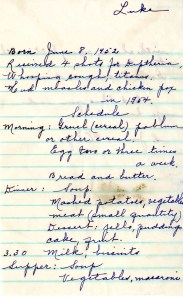 Luke
Born June 8, 1952
Received 4 shots for Diptheria,
Whooping cough, titanus.
Had measles and chicken pox
in 1954
Schedule
Morning: Gruel (cereal) pablum
or other cereal.
Egg two or three times
a week.
Bread and butter.
Dinner: Soup
Mashed potatoes, vegetable
meat (small quantity)
Dessert: jello, pudding
cake, fruit.
3.30 Milk,
Supper: Soup
Vegetables, macaroni